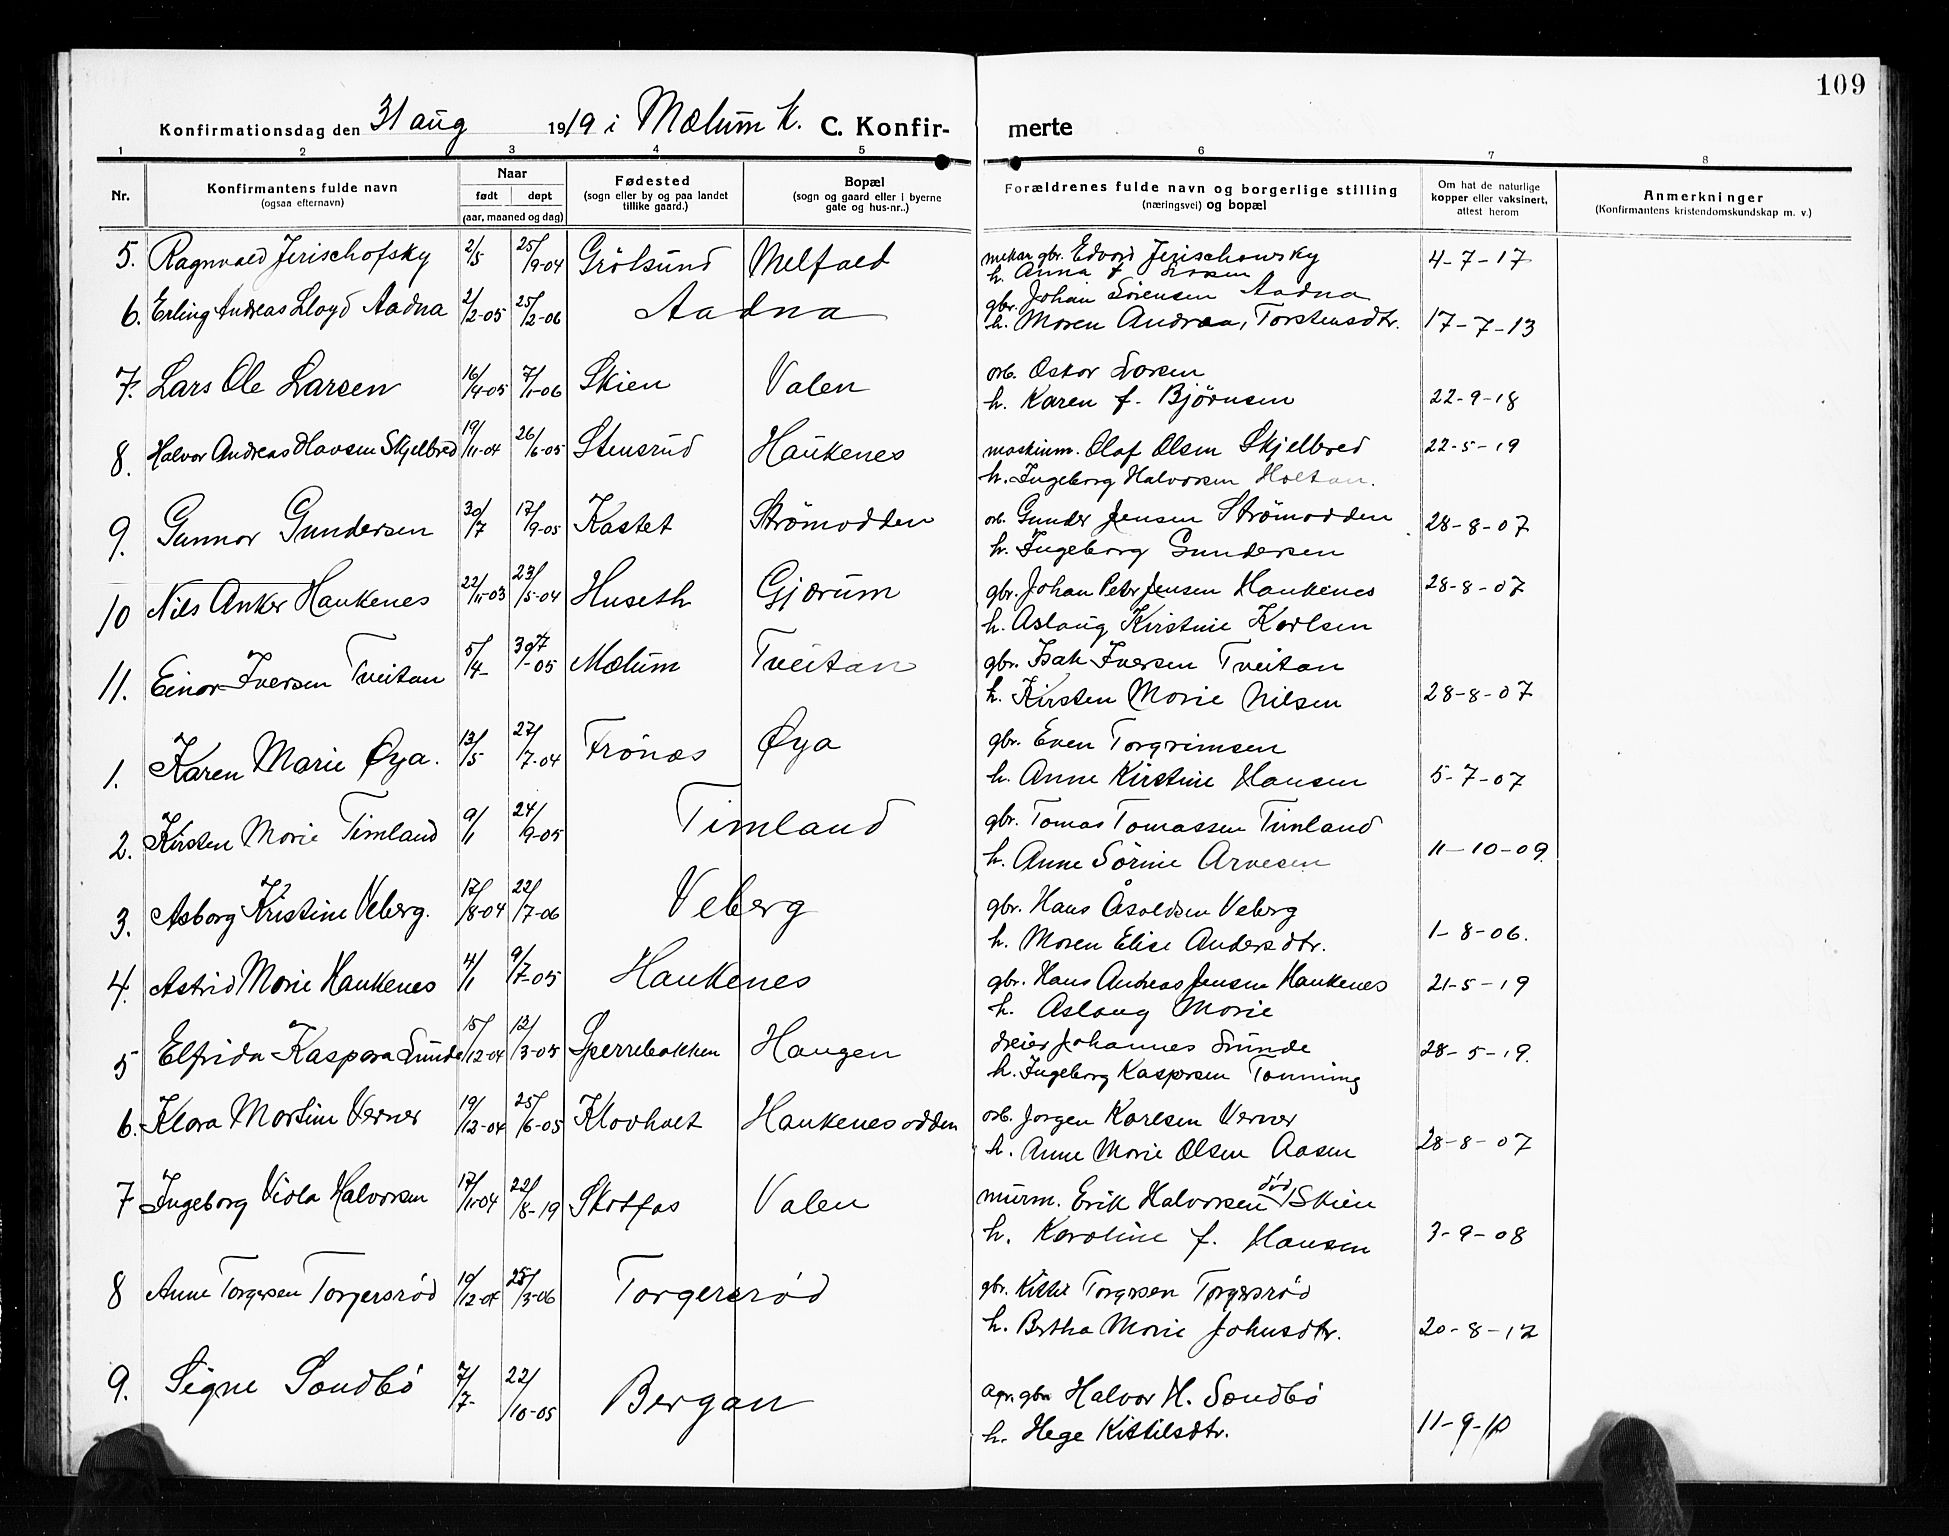 109
Konfirmationsdag den 31 aug 1919 i Mælum K. C. Konfir- merte
1 2 3 4 5 6 7 8
Nr. Konfirmantens fulde navn (ogsaa efternavn) Naar født døpt (aar, maaned og dag) Fødested (sogn eller by og paa landet tillike gaard.) Bopæl (sogn og gaard eller i byerne gate og hus-nr..) Forældrenes fulde navn og borgerlige stilling (næringsvei) og bopæl Om hat de naturlige kopper eller vaksinert, attest herom Anmerkninger (Konfirmantens kristendomskundskap m. v.)
5. Ragnvald Jerischofsky 2/5 25/9-04 Grôlsund Melfald gbr. Edvard Jerischowsky 4-7-17
h. Anna f. Larsen
6. Erling Andreas Lloyd Aadna 2/2-05 25/2-06 Aadna gbr. Johan Sörensen Aadna
h. Maren Andrea, Torstensdtr. 17-7-13
7. Lars Ole Larsen 16/4-05 7/1-06 Skien Valen arb. Oskar Larsen
h. Karen f. Björnsen 22-9-18
8. Halvor Andreas Olavsen Skjelbred 19/11-04 26/6-05 Stensrud Haukenes maskinm. Olaf Olsen Skjelbred 22-5-19
h. Ingeborg Halvorsen Holtan.
9. Gunnar Gundersen 30/7 17/9-05 Kastet Strömodden arb. Gunder Jensen Strömodden 28-8-07
h. Ingeborg Gundersen
10 Nils Anker Haukenes 22/11-03 23/5-04 Huseth Gjærum gbr. Johan Peter Jensen Haukenes 28-8-07
h. Aslaug Kirstine Karlsen
11. Einar Iversen Tveitan 5/4- 30/7-05 Mælum Tveitan gbr. Isak Iversen Tveitan
h. Kirsten Marie Nilsen 28-8-07
1. Karen Marie Øya. 13/5 27/7-04 Frönæs Øya gbr. Even Torgrimsen
h. Anne Kirstine Hansen 5-7-07
2. Kirsten Marie Timland 9/1 24/9-05 Timland gbr. Tomas Tomassen Timland
h. Anne Sörine Arvesen 11-10-09.
3. Asborg Kristine Veberg. 17/8-04 22/7-06 Veberg gbr. Hans Åsoldsen Veberg
h. Maren Elise Andersdtr. 1-8-06.
4. Astrid Marie Haukenes 4/1 9/7-05 Haukenes gbr. Hans Andreas Jensen Haukenes 21-5-19
h. Aslaug Marie
5 Elfrida Kaspara Sunde 15/12-04 12/3-05 Sperrebakken Haugen dreier Johannes Sunde 28-5-19.
h. Ingeborg Kaspersen Tonning
6. Klara Martine Verner 19/12-04 25/6-05 Klovholt Haukenesodden arb. Jørgen Karlsen Verner
h. Anne Marie Olsen Aasen 28-8-07
7 Ingeborg Viola Halvorsen 17/11-04 22/8-19 Skotfos Valen murm. Erik Halvorsen død Skien
h. Karoline f. Hansen 3-9-08
8 Anne Torgersen Torgersrød 10/12-05 25/3-06 Torgersrød gbr. Kittil Torgersen Torgersrød
h. Bertha Marie Johnsdtr. 20-8-12
9. Signe Sandbö 7/7- 22/10-05 Bergan gbr. Halvor H. Sandbö
h. Hege Kittilsdtr. 11-9-10